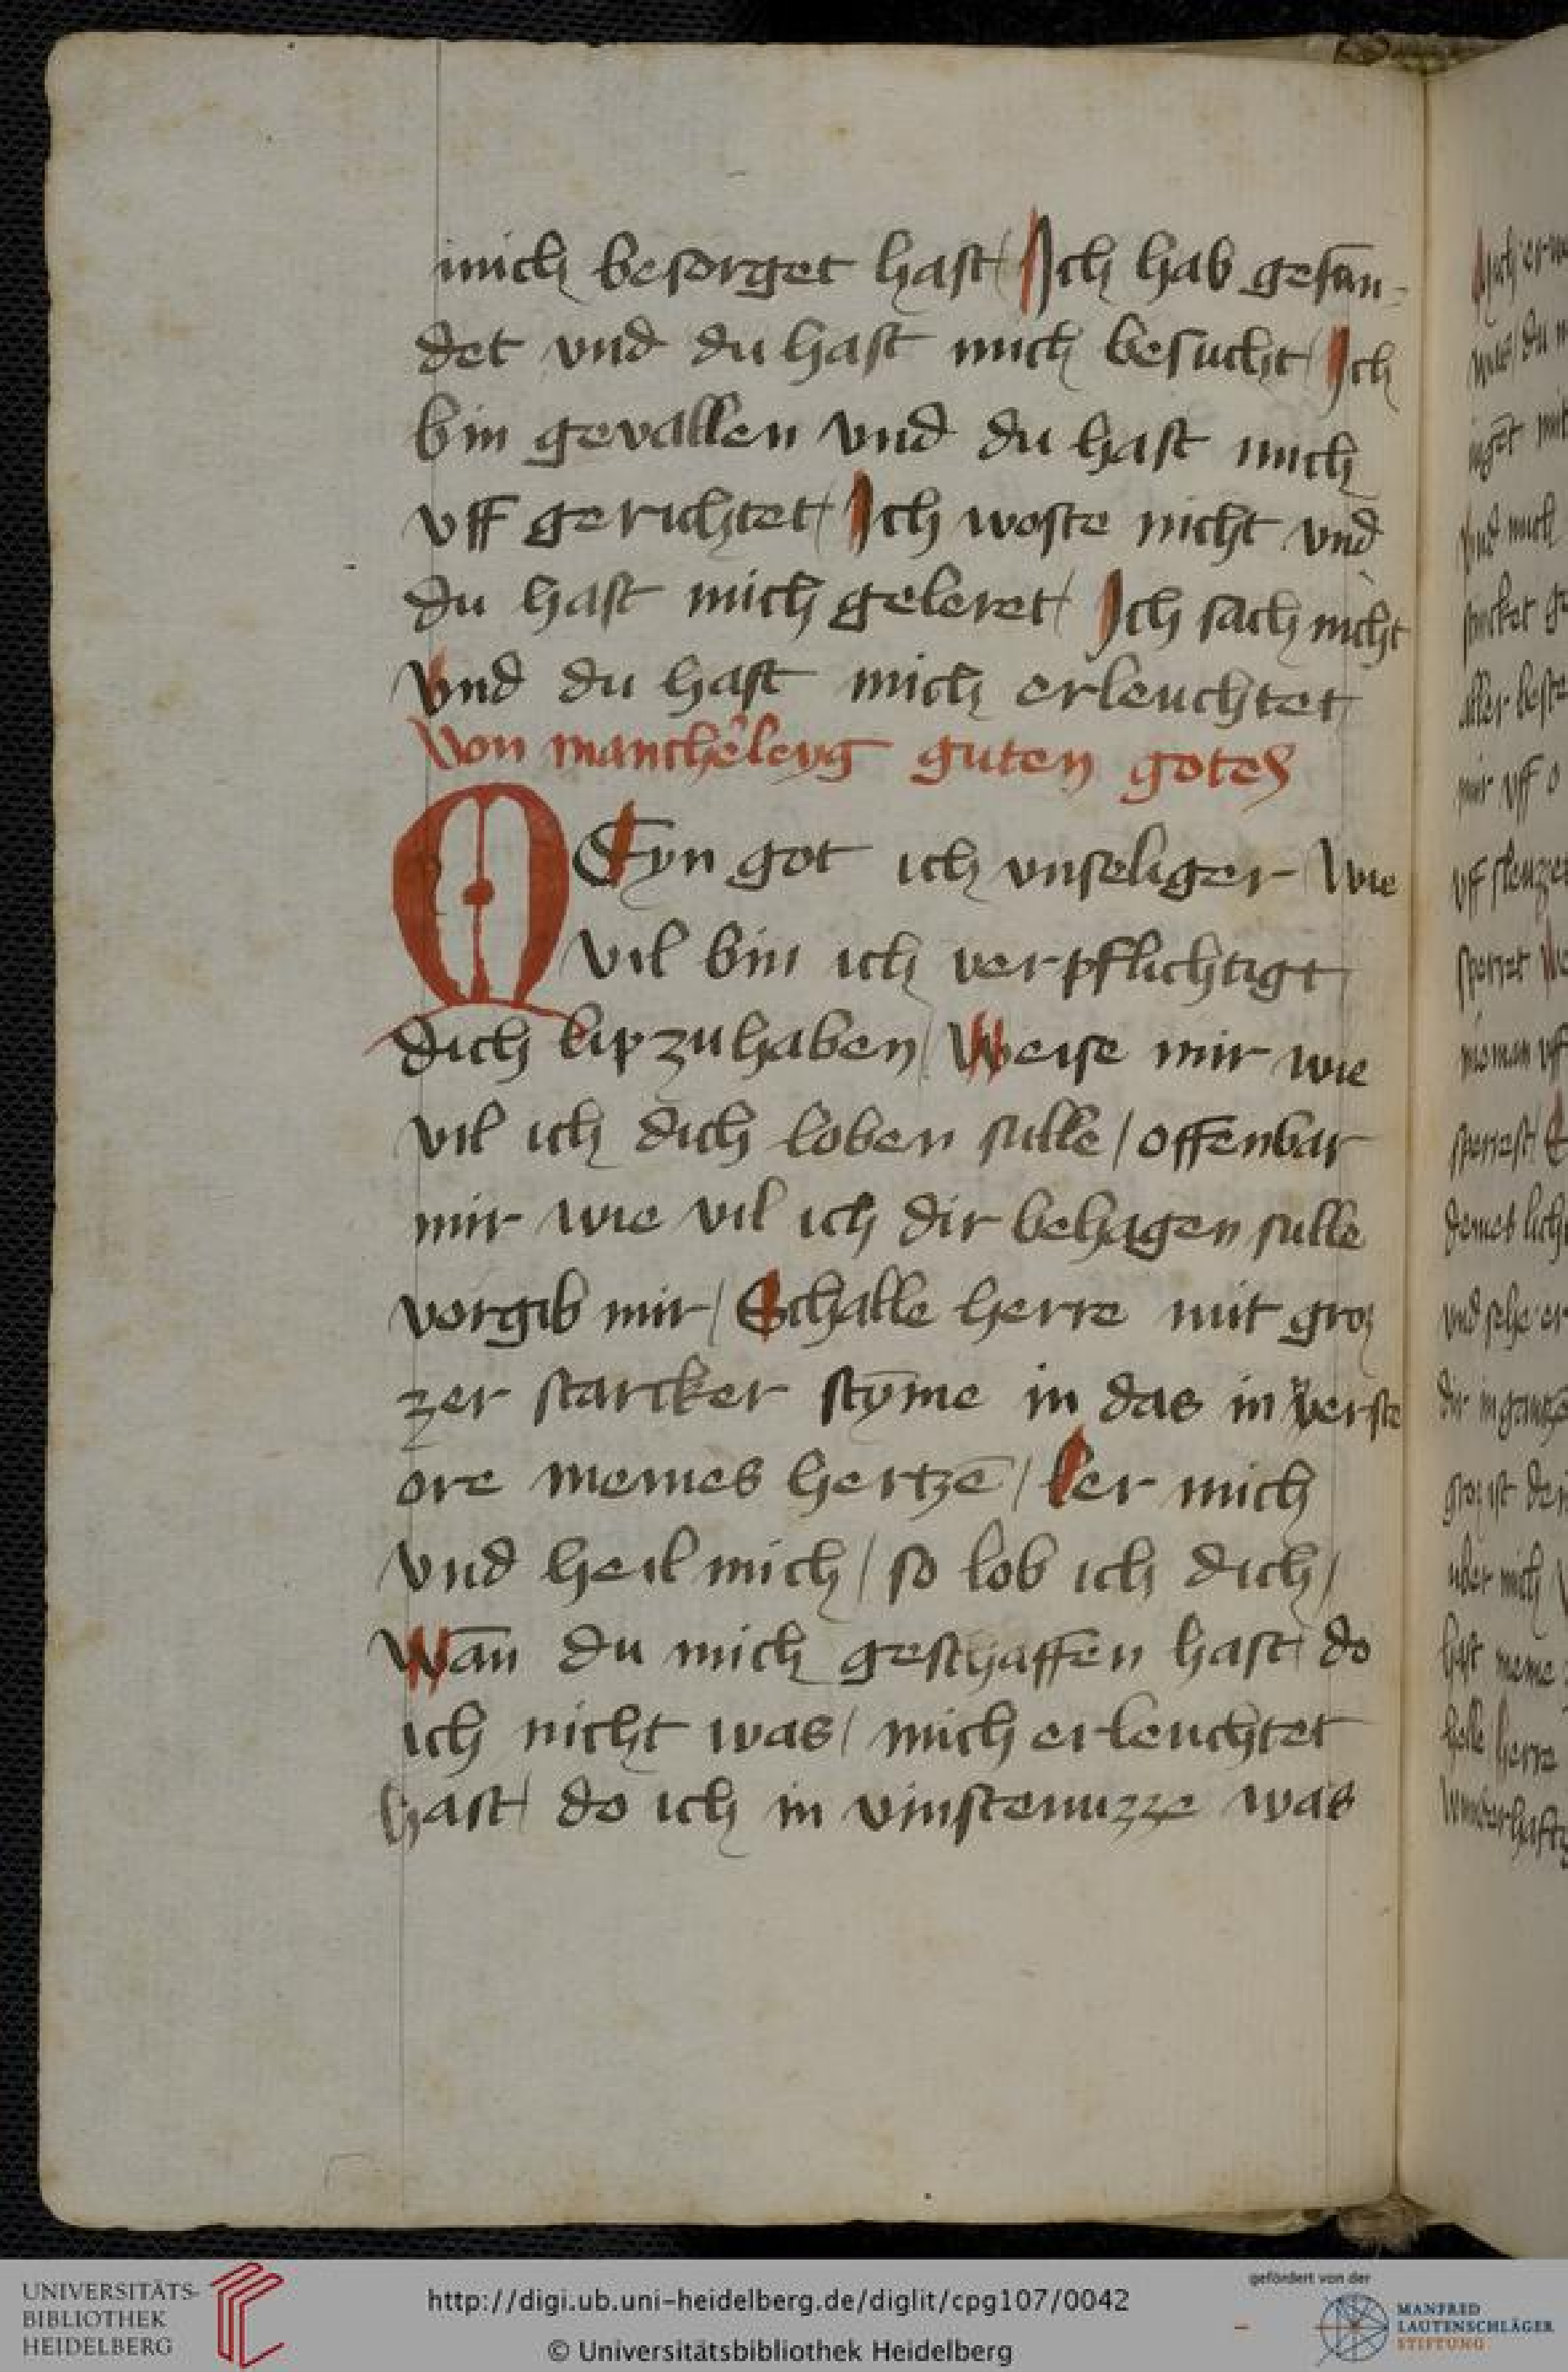 mich besorget hast / Ich hab gesūn-
det vnd du hast mich besucht / Ich
bin gevallen vnd du hast mich
vff gerichtet / Ich woste nicht vnd
du hast mich geleret / Ich sach nicht
Vnd du hast mich erleuchtet
Von mancheleyg guten gotes
MEyn got ich vnseliger wie
vil bin ich verpflichtigt
dich lip zu haben / Weise mir wie
vil ich dich loben sulle / offenbar
mir wie vil ich dir behagen sulle
vorgib mir / Schalle herre mit groz
zer starcker stȳme in das in verste
ore meines hertzē / ler mich
vnd heil mich / so lob ich dich /
Wān du mich geschaffen hast / do
ich nicht was / mich erleuchtet
hast / do ich in vinsternuzze was
UNIVERSITÄTS-
BIBLIOTHEK
HEIDELBERG
http://digi.ub.uni-heidelberg.de/diglit/cpg107/0042
© Universitätsbibliothek Heidelberg
gefördert von der
MANFRED
LAUTENSCHLÄGER
STIFTUNG